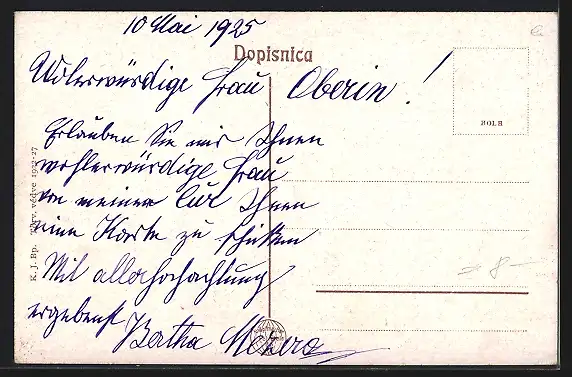 10 Mai 1925
Dopisnica
Wolerwürdige Frau Oberin!
Erlauben Sie mir Ihnen
wohlerwürdige Frau
von meiner Cur Ihnen
eine Karte zu schikken
Mit aller Hochachtung
ergebenst Bertha
K. J. Bp. Törv. védve 1922-27
BOLH
8